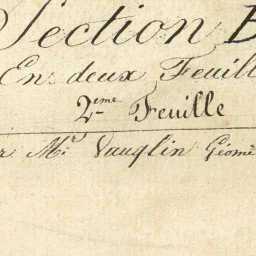 Section B
En deux Feuill
2eme Feuille
r Mr. Vauglin Géomè